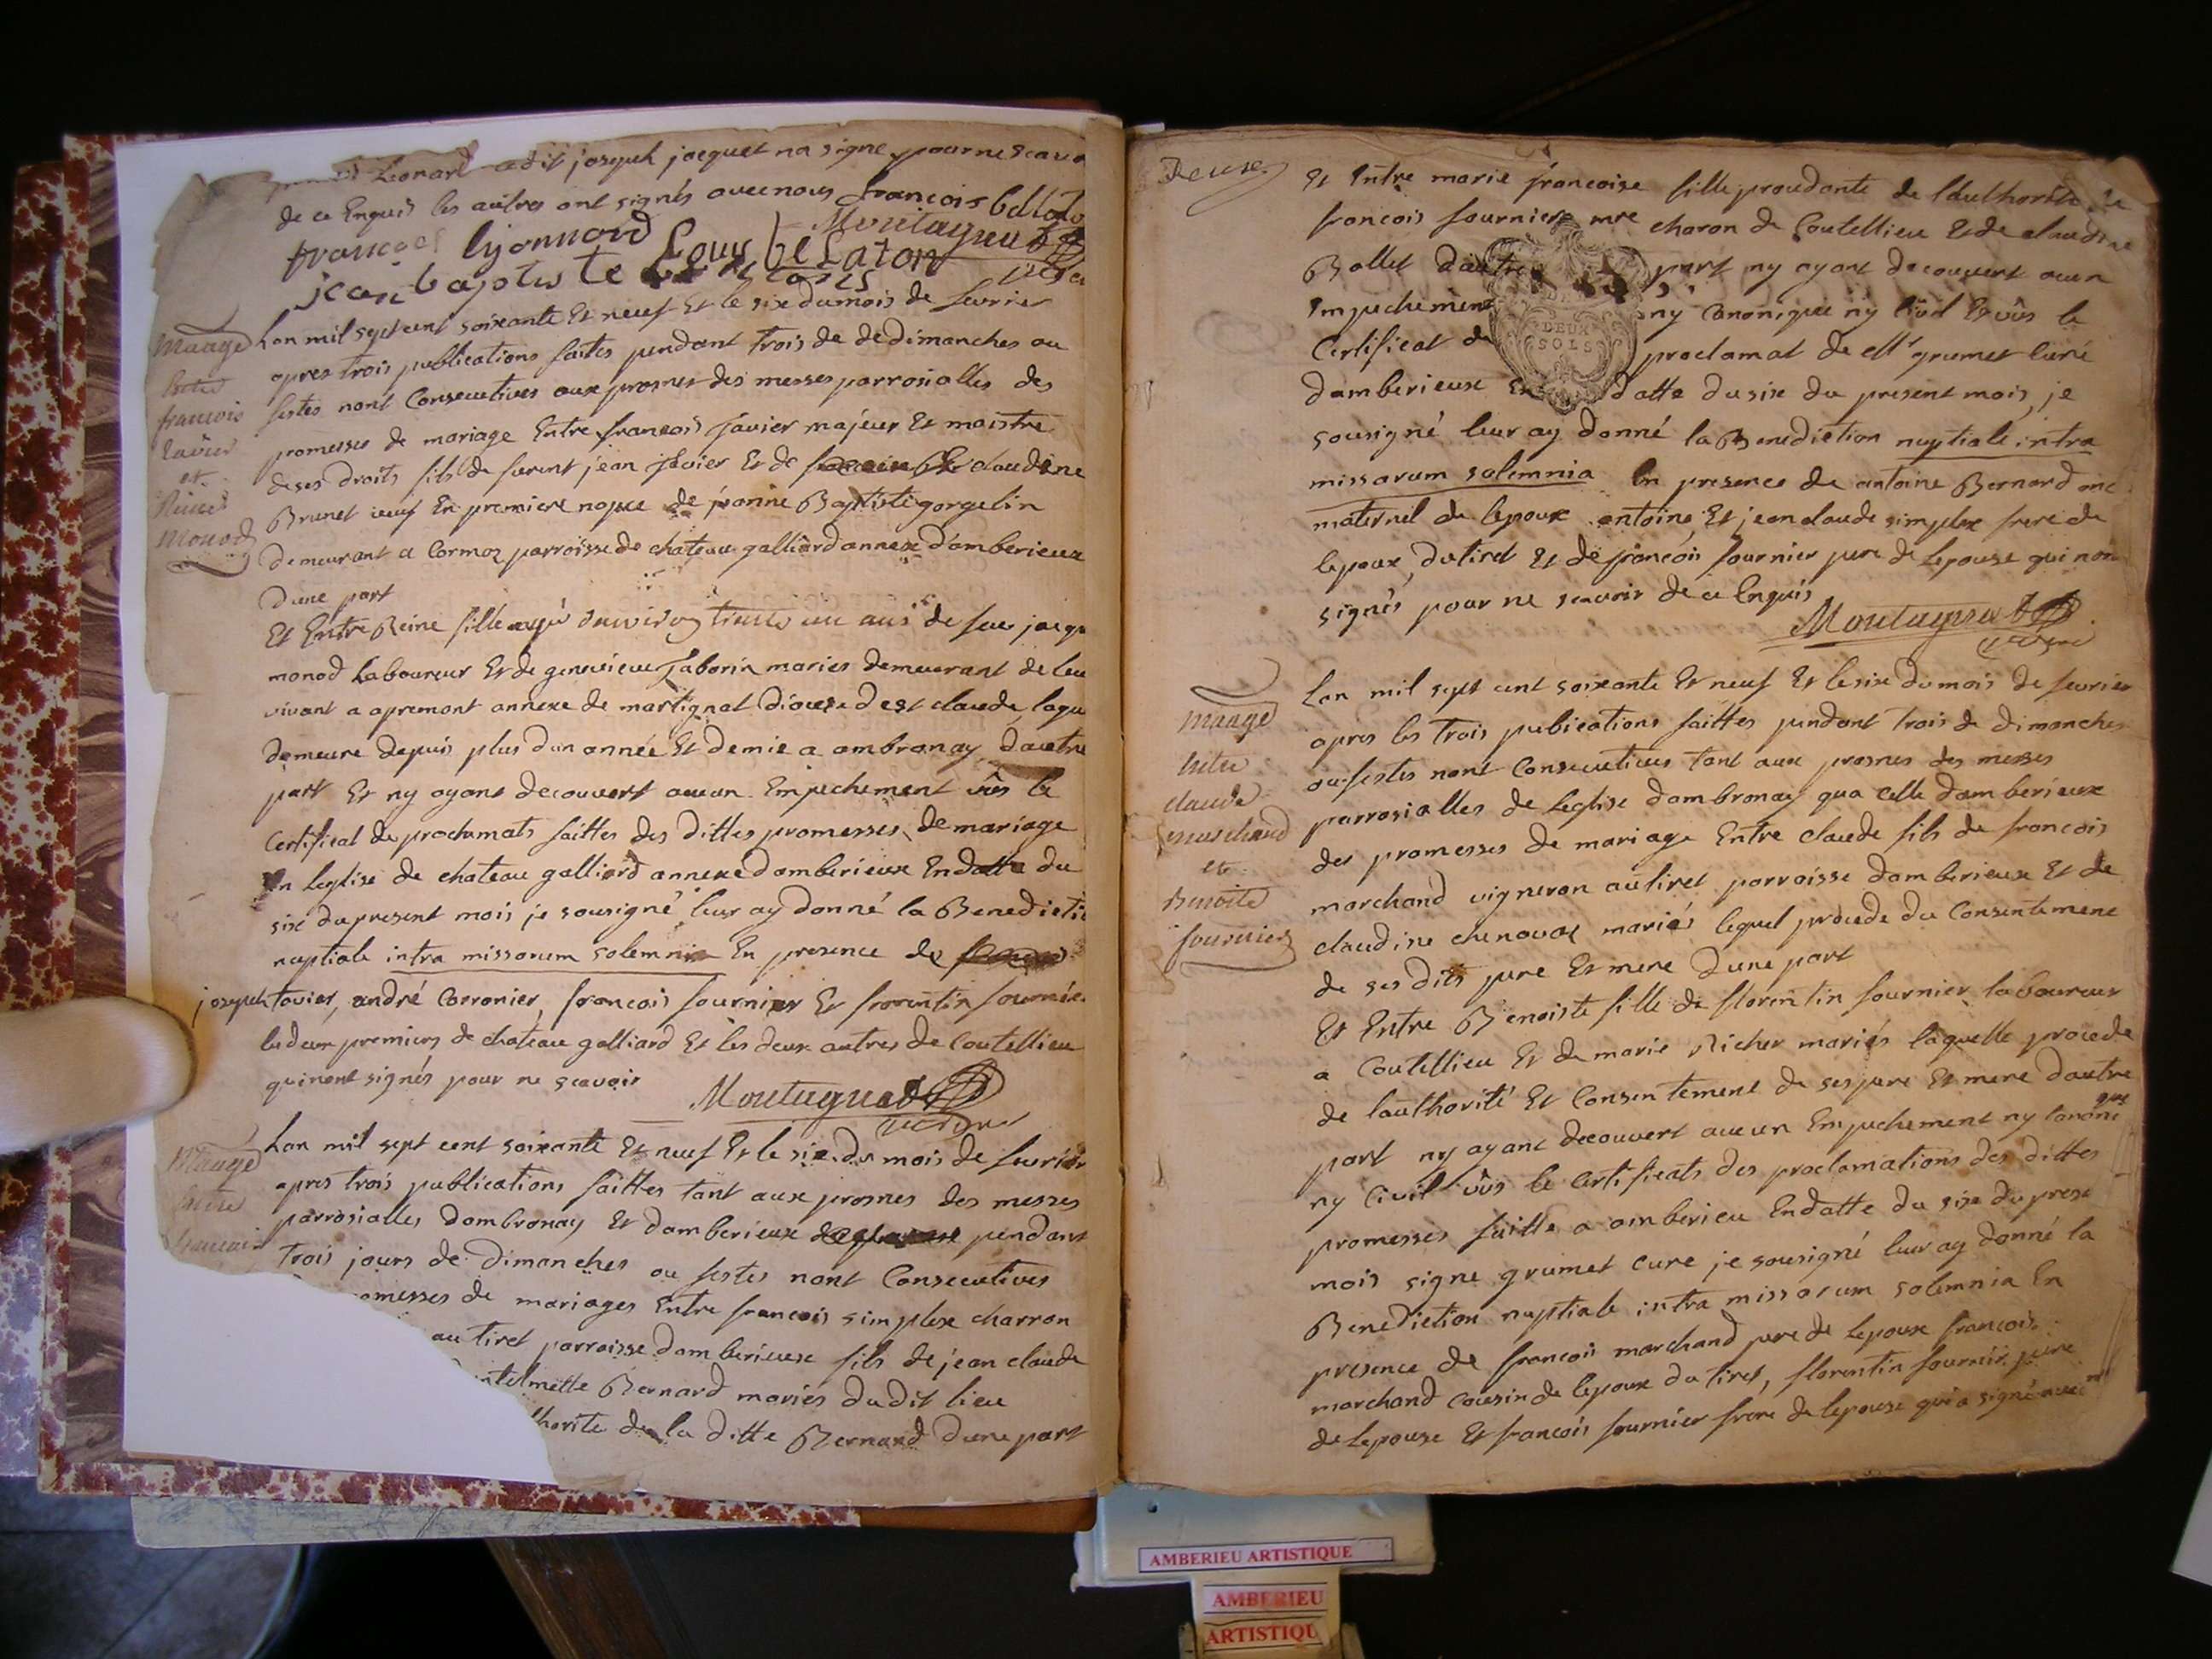 Leonard ledit joseph jacquet na signe pour ne scavoir
de ce Enquis les autres ont signés avec nous francois bellaton
francoes lyonnard Louis beLaton Montagnat
jean baptiste
Mariage
Entre
francois
Javier
et
Reine
Monod
Lan mil sept cent soixante Et neuf Et le six du mois de fevrier
apres trois publications faites pendant trois de de dimanches ou
festes nont Consecutives aux prosnes des messes parrosialles des
promesses de mariage Entre francois Javier majeur Et maistre
de ses droits fils de furent jean Javier Et de claudine
Brunet veuf En premiere nopce de jeanne Baptiste gorgelin
demeurant a Cormoz parroisse de chateau galliard annexe d'amberieux
d'une part
Et Entre Reine fille agé denviron trente un ans de feu jacque
monod Laboureur Et de genevieve Jaborin maries demeurant de leu
vivant a apremont annexe de martignat diocese dest claude laque
demeure depuis plus dun année Et demie a ambronay, dautre
part Et ny ayant decouvert aucun Empechement vûs le
Certificat de proclamats faittes des dittes promesses de mariage
En leglise de chateau galliard annexe damberieux En datte du
six du present mois je sousigné leur ay donné la Benedictio
nuptiale intra missarum solemnia En presence de
joseph tavier, andré Corronier, francois fournier Et florentin fournier
les deux premiers de chateau galliard Et les deux autres de Coutellieu
qui nont signés pour ne scavoir Montagnat
Mariage
Entre
francois
Lan mil sept cent soixante Et neuf Et le six du mois de fevrier
apres trois publications faittes tant aux prosnes des messes
parrosialles dambronay Et damberieux pendant
trois jours de dimanches ou festes nont Consecutives
omesses de mariages Entre francois simplex charron
au tiret parroisse damberieux fils de jean claude
ntelmette Bernard mariés dudit lieu
thorite de la ditte Bernard dune part
Et Entre marie francoise fille procedante de lauthorité de
francois fournier mre charon de Coutellieu Et de claudine
Bollet dautre part ny ayant decouvert aucun
Empechement ny Canonique ny Civil Et vûs le
Certificat de proclamat de Mr grumet Curé
damberieux En datte du six du present mois, je
sousigné leur ay donné la Benediction nuptiale intra
missarum solemnia En presence de antoine Bernard oncle
maternel de lepoux antoine Et jean claude simplex frere de
lepoux, du tiret Et de francois fournier pere de Lepouse qui non
signés pour ne scavoir de ce Enquis
Montagnat
Mariage
Entre
claude
marchand
et
Benoite
fournier
Lan mil sept cent soixante Et neuf Et le six du mois de fevrier
apres les trois publications faittes pendant trois de dimanches
ou festes nont Consecutives tant aux prosnes des messes
parrosialles de Leglise dambronay qua celle damberieux
des promesses de mariage Entre claude fils de francois
marchand vigneron au tiret parroisse damberieux Et de
claudine chenavaz mariés lequel procede du Consentement
de ses dits pere Et mere dune part
Et Entre Benoiste fille de florentin fournier laboureur
a Coutellieu Et de marie Richer mariés laquelle procede
de lauthorité Et Consentement de ses pere Et mere dautre
part ny ayant decouvert aucun Empechement ny Canonique
ny Civil vûs le Certificats des proclamations des dittes
promesses faitte a amberieu En datte du six du prese
mois signe grumet cure je sousigné leur ay donné la
Benediction nuptiale intra missarum solemnia En
presence de francois marchand pere de lepoux francois
marchand Cousin de lepoux du tiret, florentin fournier pere
de Lepouse Et francois fournier frere de lepouse qui a signé avec
DEUX
SOLS
AMBERIEU ARTISTIQUE
AMBERIEU
ARTISTIQU